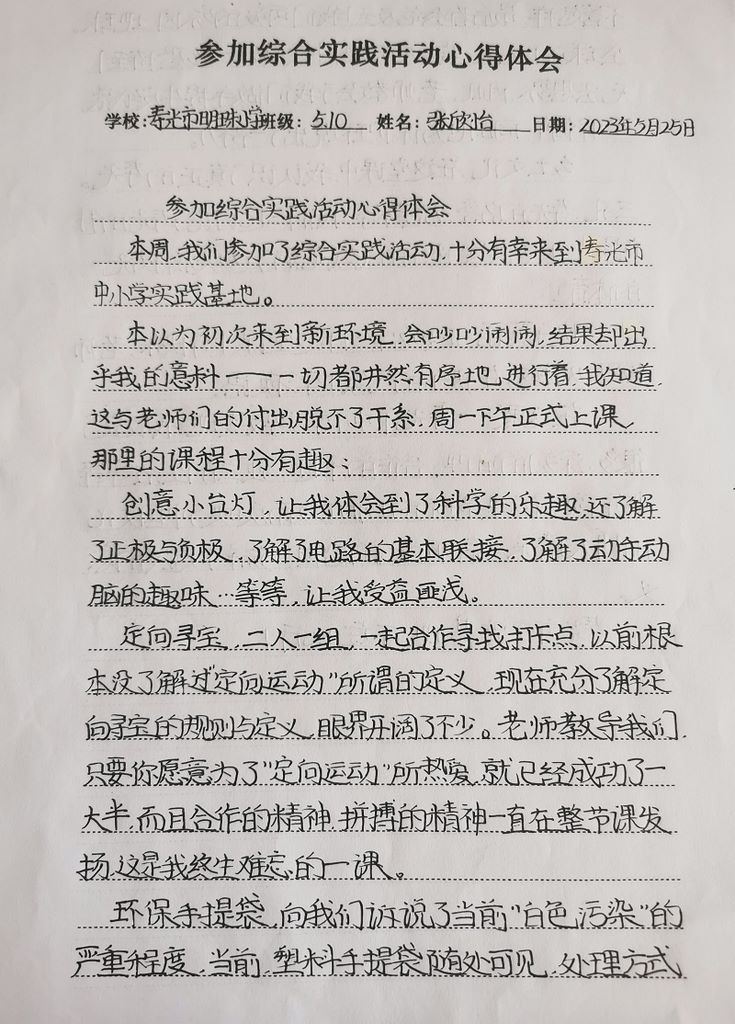 参加综合实践活动心得体会
学校:寿光市明珠小学班级:5.10 姓名:张欣怡 日期:2023年5月25日
参加综合实践活动心得体会
本周,我们参加了综合实践活动,十分有幸来到寿光市
中小学实践基地。
本以为初次来到新环境,会吵吵闹闹,结果却出
乎我的意料——一切都井然有序地进行着,我知道,
这与老师们的付出脱不了干系,周一下午正式上课,
那里的课程十分有趣;
创意小台灯,让我体会到了科学的乐趣,还了解
了正极与负极,了解了电路的基本联接,了解了动手动
脑的趣味…等等,让我受益匪浅。
定向寻宝,二人一组,一起合作寻找打卡点,以前根
本没了解过“定向运动”所谓的定义,现在充分了解定
向寻宝的规则与定义,眼界开阔了不少。老师教导我们,
只要你愿意为了“定向运动”所热爱,就已经成功了一
大半,而且合作的精神,拼搏的精神一直在整节课发
扬,这是我终生难忘的一课。
环保手提袋,向我们诉说了当前“白色污染”的
严重程度,当前,塑料手提袋随处可见,处理方式